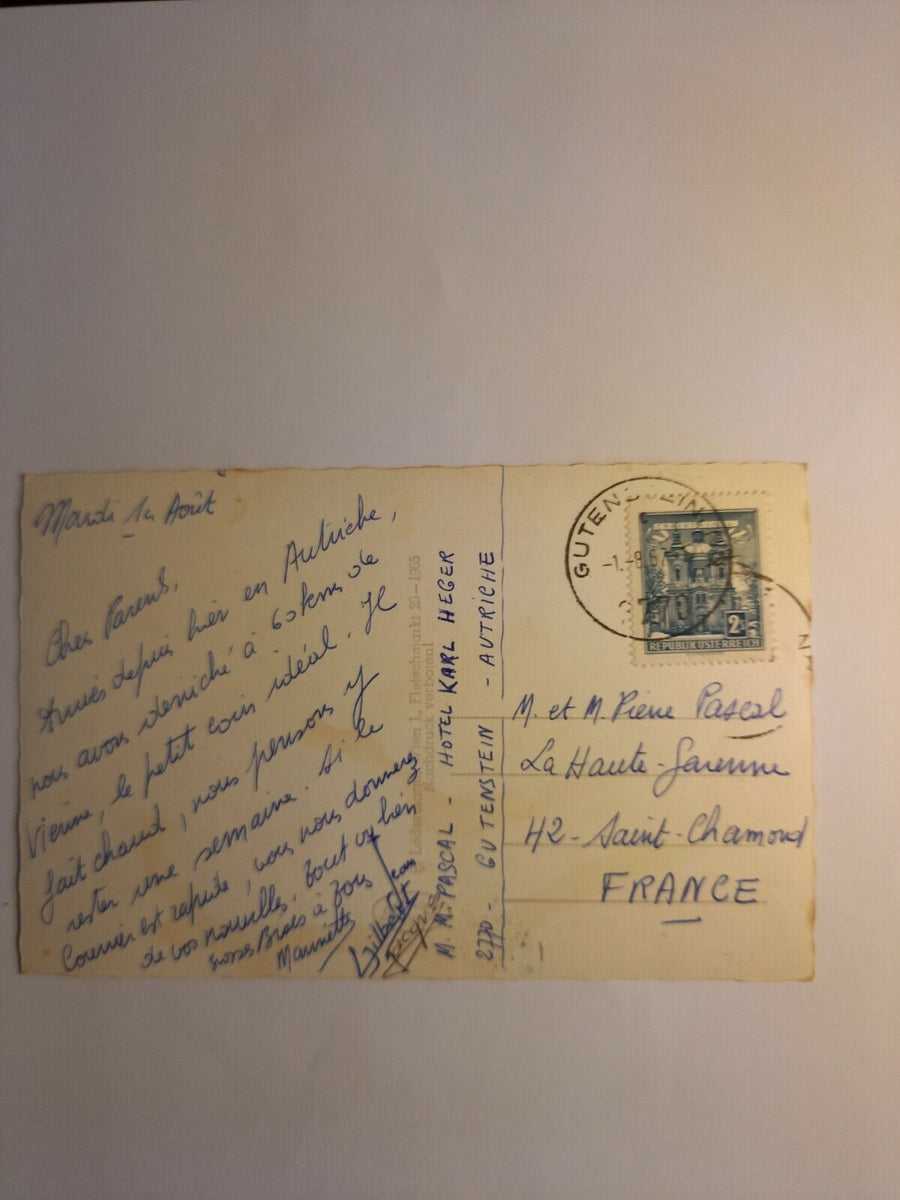 Mardi 1er Août
Chers Parents,
Arrivés depuis hier en Autriche,
nous avons déniché à 60 kms de
Vienne, le petit coin idéal. Il
fait chaud, nous pensons y
rester une semaine. Si le
Courrier est rapide, vous nous donnerez
de vos nouvelles. Tout va bien
Grosses Bises à Tous
Mauricette
Gilbert
Fleischmarkt 20-1965
Nachdruck verboten!
M. M. PASCAL - HOTEL KARL HEGER
2770 - GUTENSTEIN - AUTRICHE
GUTENSTEIN
-1.-8.67
2770
2
REPUBLIK ÖSTERREICH
M. et M. Pierre Pascal
La Haute-Garenne
42-Saint-Chamond
FRANCE